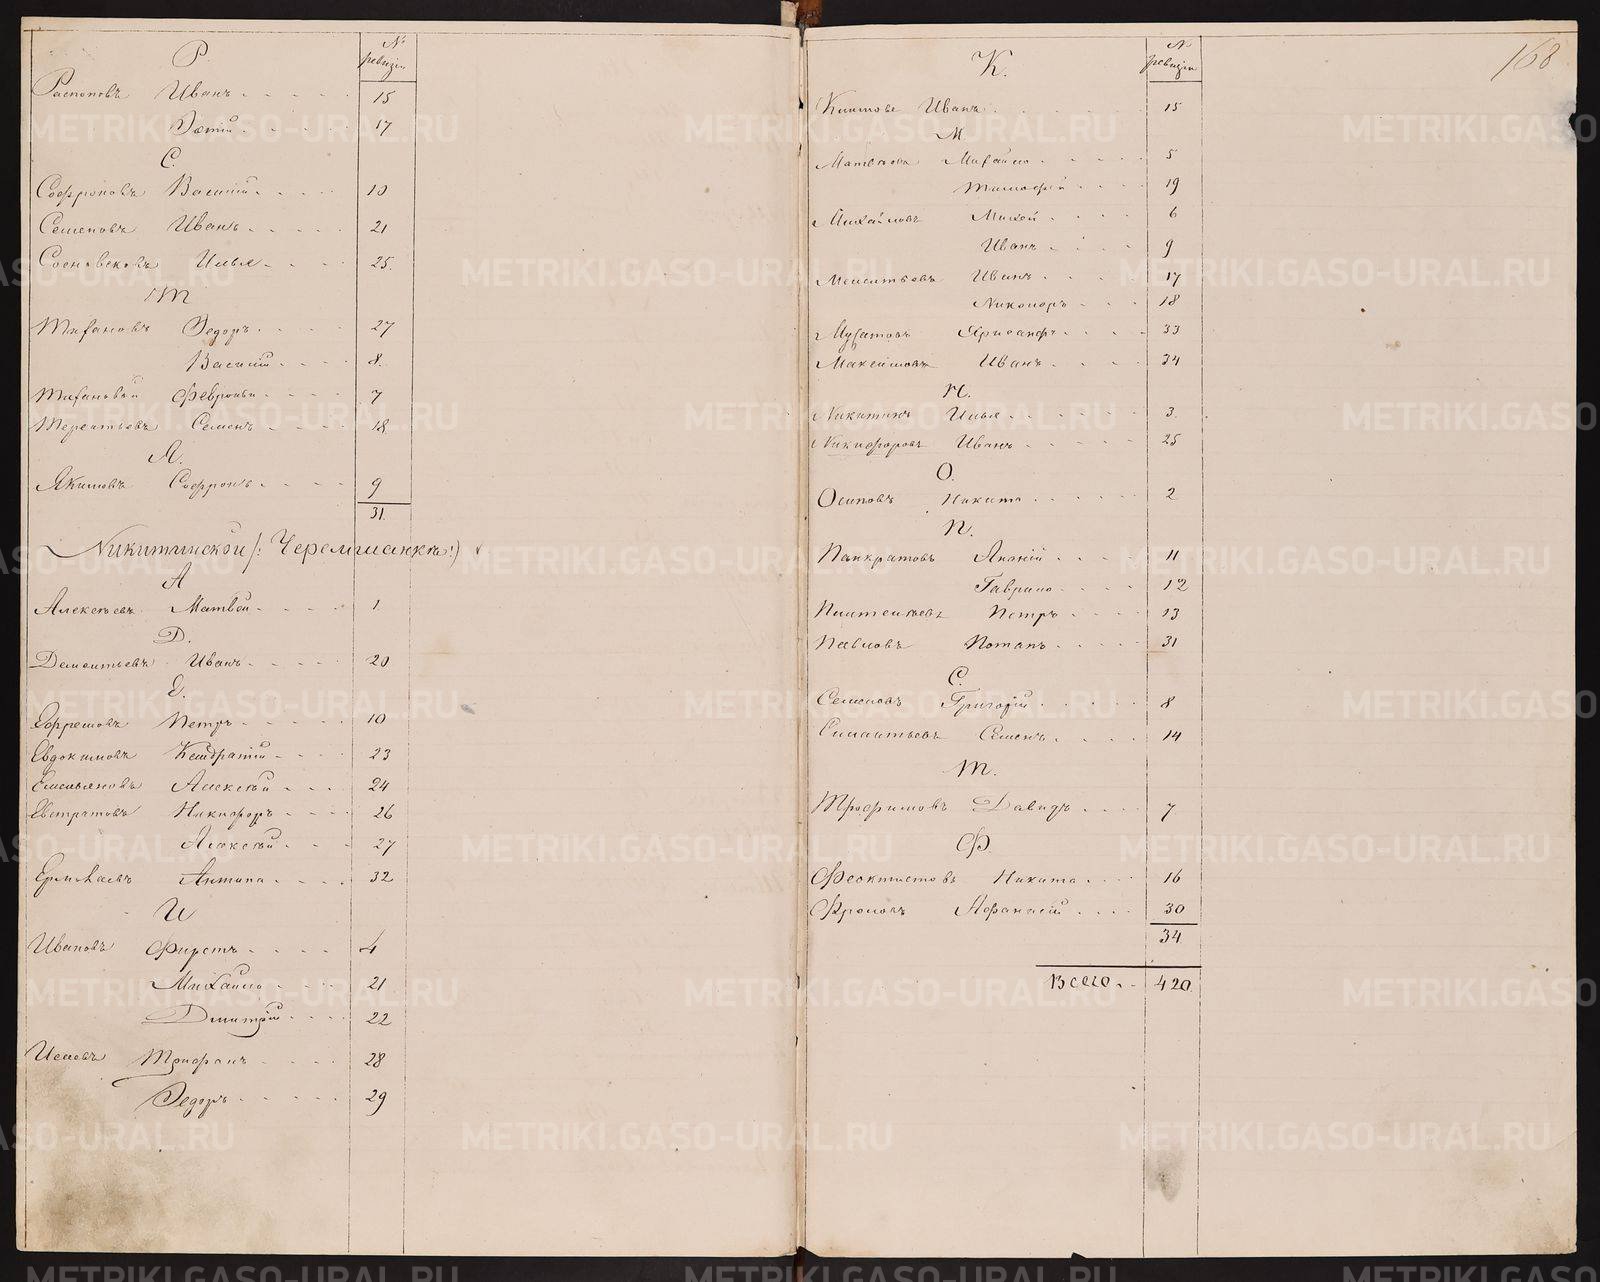 Р.
№ ревизіи
Распоповъ Иванъ 15
Фотій 17
С.
Софроновъ Василій 10
Семеновъ Иванъ 21
Сосновсковъ Илья 25.
Т
Тифановъ Федоръ 27
Василій 8.
Тифановой Февроньи 7
Терентьевъ Семенъ 18.
Я.
Якимовъ Софронъ 9
31.
Никитинской /: Черемшанкѣ :)
А
Алексѣевъ Матвѣй 1
Д.
Дементьевъ Иванъ 20
Е.
Ефремовъ Петръ 10
Евдокимовъ Кондратій 23
Емельяновъ Алексѣй 24
Евстратовъ Никифоръ 26
Алексѣй 27
Ермолаевъ Антипа 32
И
Ивановъ Фирстъ 4
Михайло 21
Дмитрій 22
Исаевъ Трифанъ 28
Федоръ 29
168
К.
№ ревизіи
Иванъ 15
М
Матвѣевъ Михайло 5
Тимофѣй 19
Михайловъ Михей 6
Иванъ 9
Меленьтьевъ Иванъ 17
Никоноръ 18
Мусатовъ Хрисанфъ 33
Максимовъ Иванъ 34
Н.
Никитинъ Илья 3.
Никифоровъ Иванъ 25
О.
Осиповъ Никита 2
П.
Панкратовъ Ананій 11
Гаврило 12
Пантелѣевъ Петръ 13
Павловъ Потапъ 31
С.
Семеновъ Григорій 8
Силантьевъ Семенъ 14
Т.
Трофимовъ Давидъ 7
Ф.
Феоктистовъ Никита 16
Фроловъ Афанасій 30
34
Всего 420.